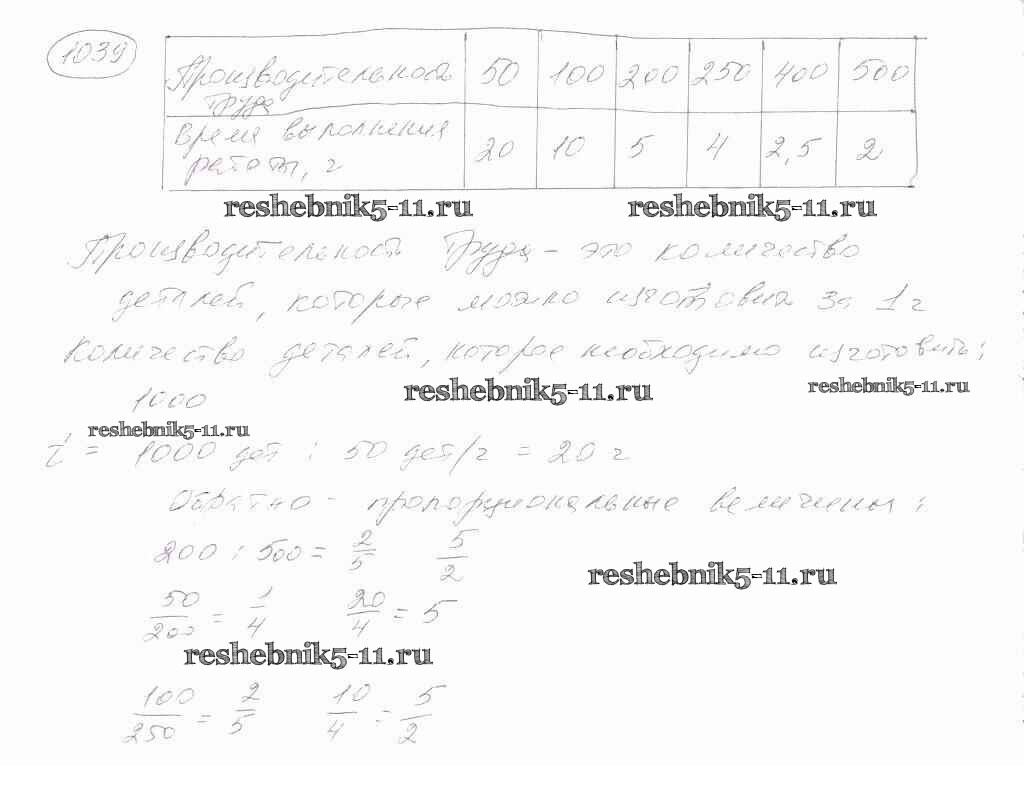 1039
Производительность труда 50 100 200 250 400 500
Время выполнения работы, ч 20 10 5 4 2,5 2
reshebnik5-11.ru reshebnik5-11.ru
Производительность труда – это количество
деталей, которые можно изготовить за 1 ч
Количество деталей, которое необходимо изготовить:
1000
reshebnik5-11.ru reshebnik5-11.ru
reshebnik5-11.ru
= 1000 дет : 50 дет/ч = 20 ч
Обратно - пропорциональные величины:
200 : 500 = 2/5 5/2
reshebnik5-11.ru
50/200 = 1/4 20/4 = 5
reshebnik5-11.ru
100/250 = 2/5 10/4 = 5/2